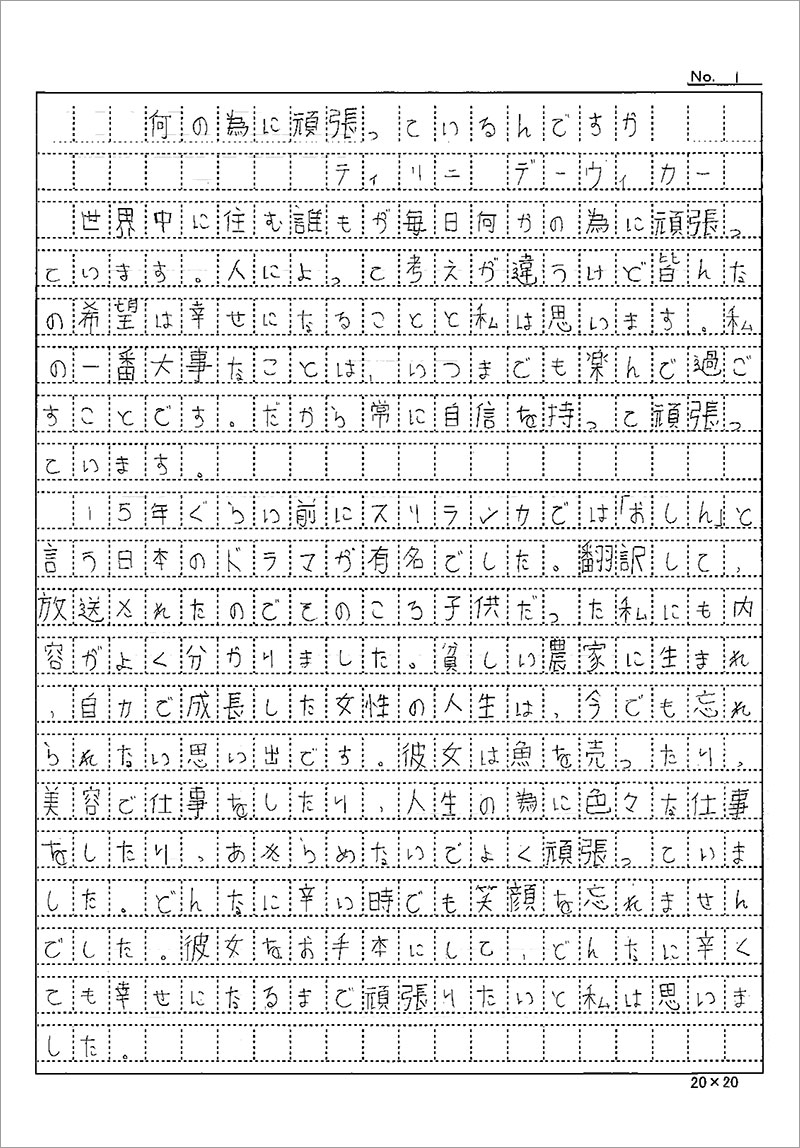 No. 1
何の為に頑張っているんですか
ティリニ デーヴィカー
世界中に住む誰もが毎日何かの為に頑張っ
ています。人によって考えが違うけど皆んな
の希望は幸せになることと私は思います。私
の一番大事なことは、いつまでも楽んで過ご
すことです。だから常に自信を持って頑張っ
ています。
15年ぐらい前にスリランカでは「おしん」と
言う日本のドラマが有名でした。翻訳して、
放送されたのでそのころ子供だった私にも内
容がよく分かりました。貧しい農家に生まれ
、自力で成長した女性の人生は、今でも忘れ
られない思い出です。彼女は魚を売ったり、
美容で仕事をしたり、人生の為に色々な仕事
をしたり、あきらめないでよく頑張っていま
した。どんなに辛い時でも笑顔を忘れません
でした。彼女をお手本にして、どんなに辛く
ても幸せになるまで頑張りたいと私は思いま
した。
20×20